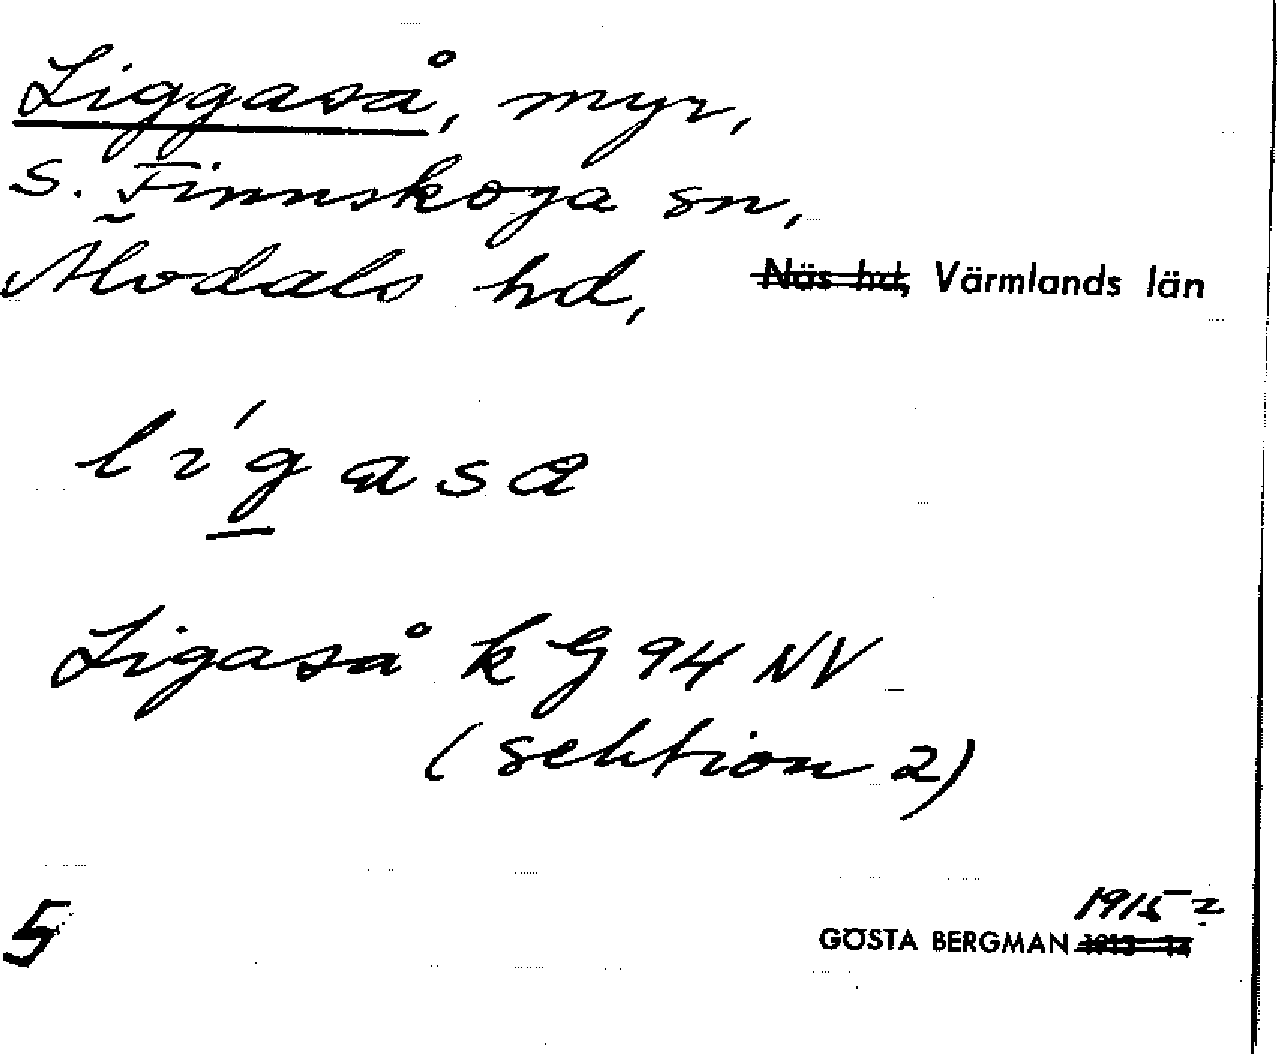 Liggaså, myr,
S. Finnskoga sn,
Älvdals hd, Näs hd, Värmlands län
lígasa
Ligaså k G 94 NV
(sektion 2)
1915
5 GÖSTA BERGMAN 1913–14